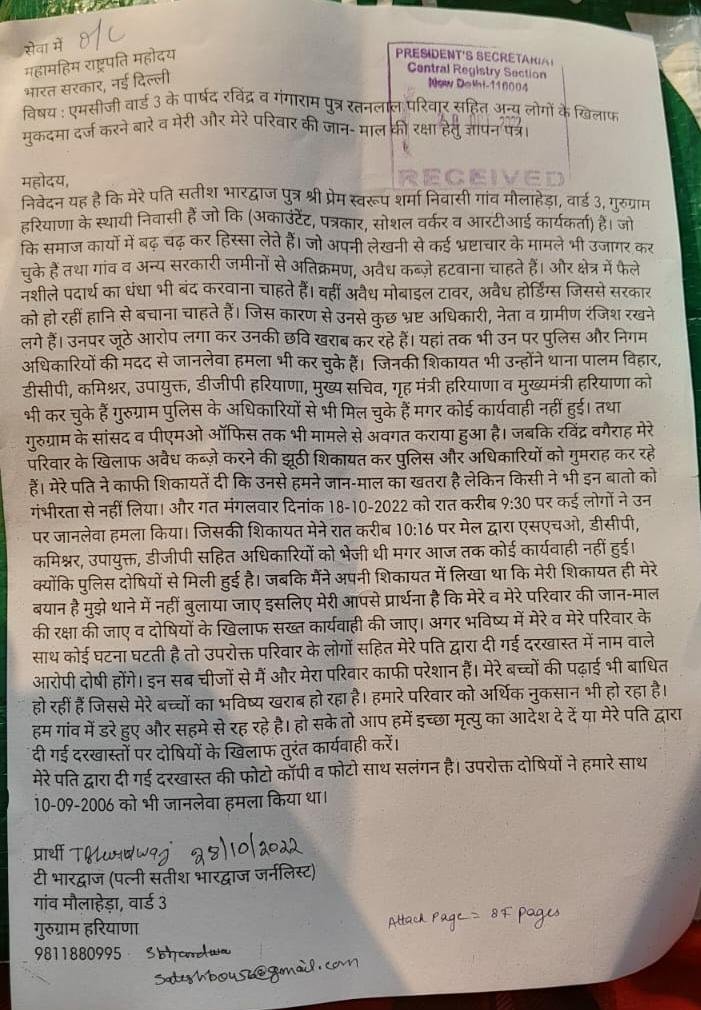 सेवा में O/C
महामहिम राष्ट्रपति महोदय
भारत सरकार, नई दिल्ली
PRESIDENT'S SECRETARIAT
Central Registry Section
New Delhi-110004
RECEIVED
विषय : एमसीजी वार्ड 3 के पार्षद रविंद्र व गंगाराम पुत्र रतनलाल परिवार सहित अन्य लोगों के खिलाफ
मुकदमा दर्ज करने बारे व मेरी और मेरे परिवार की जान- माल की रक्षा हेतु ज्ञापन पत्र।
महोदय,
निवेदन यह है कि मेरे पति सतीश भारद्वाज पुत्र श्री प्रेम स्वरूप शर्मा निवासी गांव मौलाहेड़ा, वार्ड 3, गुरुग्राम
हरियाणा के स्थायी निवासी हैं जो कि (अकाउंटेंट, पत्रकार, सोशल वर्कर व आरटीआई कार्यकर्ता) हैं। जो
कि समाज कार्यो में बढ़ चढ़ कर हिस्सा लेते हैं। जो अपनी लेखनी से कई भ्रष्टाचार के मामले भी उजागर कर
चुके हैं तथा गांव व अन्य सरकारी जमीनों से अतिक्रमण, अवैध कब्ज़े हटवाना चाहते हैं। और क्षेत्र में फैले
नशीले पदार्थ का धंधा भी बंद करवाना चाहते हैं। वहीं अवैध मोबाइल टावर, अवैध होर्डिंग्स जिससे सरकार
को हो रहीं हानि से बचाना चाहते हैं। जिस कारण से उनसे कुछ भ्रष्ट अधिकारी, नेता व ग्रामीण रंजिश रखने
लगे हैं। उनपर जूठे आरोप लगा कर उनकी छवि खराब कर रहे हैं। यहां तक भी उन पर पुलिस और निगम
अधिकारियों की मदद से जानलेवा हमला भी कर चुके हैं। जिनकी शिकायत भी उन्होंने थाना पालम विहार,
डीसीपी, कमिश्नर, उपायुक्त, डीजीपी हरियाणा, मुख्य सचिव, गृह मंत्री हरियाणा व मुख्यमंत्री हरियाणा को
भी कर चुके हैं गुरुग्राम पुलिस के अधिकारियों से भी मिल चुके हैं मगर कोई कार्यवाही नहीं हुई। तथा
गुरुग्राम के सांसद व पीएमओ ऑफिस तक भी मामले से अवगत कराया हुआ है। जबकि रविंद्र वगैराह मेरे
परिवार के खिलाफ अवैध कब्ज़े करने की झूठी शिकायत कर पुलिस और अधिकारियों को गुमराह कर रहे
हैं। मेरे पति ने काफी शिकायतें दी कि उनसे हमने जान-माल का खतरा है लेकिन किसी ने भी इन बातो को
गंभीरता से नहीं लिया। और गत मंगलवार दिनांक 18-10-2022 को रात करीब 9:30 पर कई लोगों ने उन
पर जानलेवा हमला किया। जिसकी शिकायत मेने रात करीब 10:16 पर मेल द्वारा एसएचओ, डीसीपी,
कमिश्नर, उपायुक्त, डीजीपी सहित अधिकारियों को भेजी थी मगर आज तक कोई कार्यवाही नहीं हुई।
क्योंकि पुलिस दोषियों से मिली हुई है। जबकि मैंने अपनी शिकायत में लिखा था कि मेरी शिकायत ही मेरे
बयान है मुझे थाने में नहीं बुलाया जाए इसलिए मेरी आपसे प्रार्थना है कि मेरे व मेरे परिवार की जान-माल
की रक्षा की जाए व दोषियों के खिलाफ सख्त कार्यवाही की जाए। अगर भविष्य में मेरे व मेरे परिवार के
साथ कोई घटना घटती है तो उपरोक्त परिवार के लोगों सहित मेरे पति द्वारा दी गई दरखास्त में नाम वाले
आरोपी दोषी होंगे। इन सब चीजों से मैं और मेरा परिवार काफी परेशान हैं। मेरे बच्चों की पढ़ाई भी बाधित
हो रहीं हैं जिससे मेरे बच्चों का भविष्य खराब हो रहा है। हमारे परिवार को अर्थिक नुकसान भी हो रहा है।
हम गांव में डरे हुए और सहमे से रह रहे है। हो सके तो आप हमें इच्छा मृत्यु का आदेश दे दें या मेरे पति द्वारा
दी गई दरखास्तों पर दोषियों के खिलाफ तुरंत कार्यवाही करें।
मेरे पति द्वारा दी गई दरखास्त की फोटो कॉपी व फोटो साथ सलंगन है। उपरोक्त दोषियों ने हमारे साथ
10-09-2006 को भी जानलेवा हमला किया था।
प्रार्थी TBhardwaj 28/10/2022
टी भारद्वाज (पत्नी सतीश भारद्वाज जर्नलिस्ट)
गांव मौलाहेड़ा, वार्ड 3
गुरुग्राम हरियाणा
Attach Page = 87 pages
9811880995